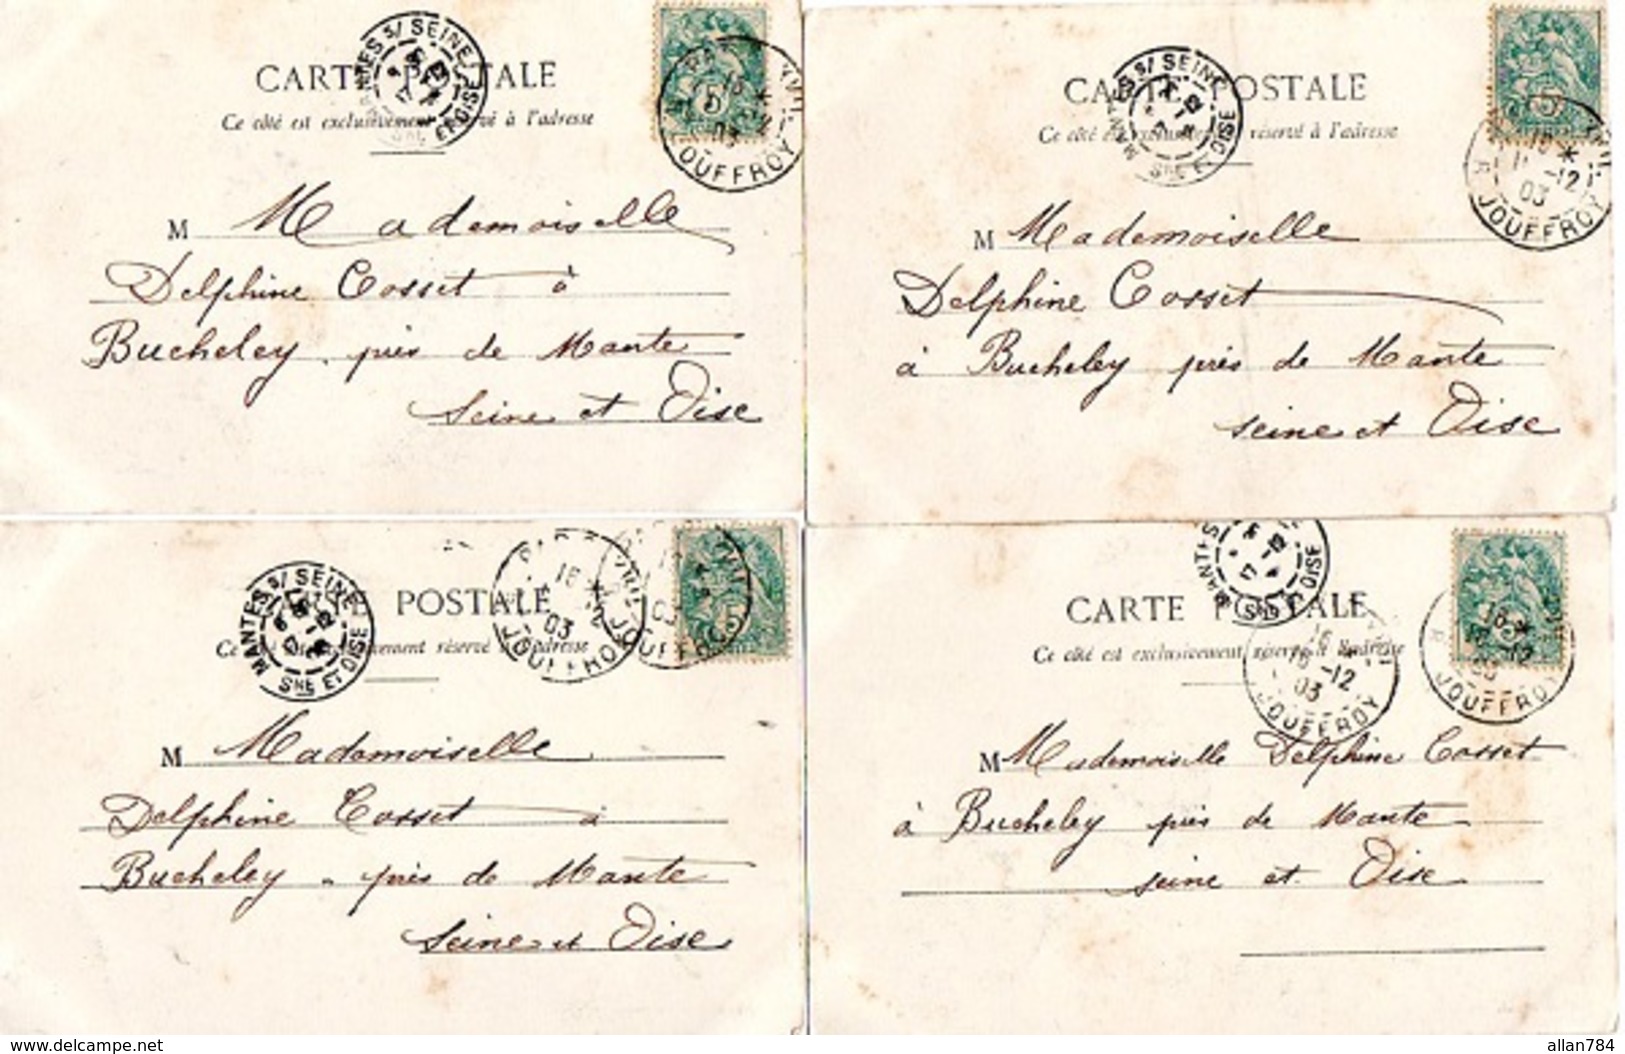 CARTE POSTALE
Ce côté est exclusivement réservé à l'adresse
MANTES S/ SEINE
SNE ET OISE
5
JOUFFROY
M Mademoiselle
Delphine Cosset à
Bucheley près de Mante
Seine et Oise
CARTE POSTALE
Ce côté est exclusivement réservé à l'adresse
MANTES S/ SEINE
SNE ET OISE
5
16 *
-12
03
R. JOUFFROY
M Mademoiselle
Delphine Cosset
à Bucheley près de Mante
seine et Oise
POSTALE
Ce côté est exclusivement réservé à l'adresse
MANTES S/ SEINE
SNE ET OISE
16 *
03
JOUFFROY
5
JOUFFROY
M Mademoiselle
Delphine Cosset à
Bucheley près de Mante
Seine et Oise
CARTE POSTALE
Ce côté est exclusivement réservé à l'adresse
MANTES
SNE ET OISE
16
-12
03
JOUFFROY
16 *
-12
R. JOUFFROY
M Mademoiselle Delphine Cosset
à Bucheley près de Mante
seine et Oise
www.delcampe.net
allan784